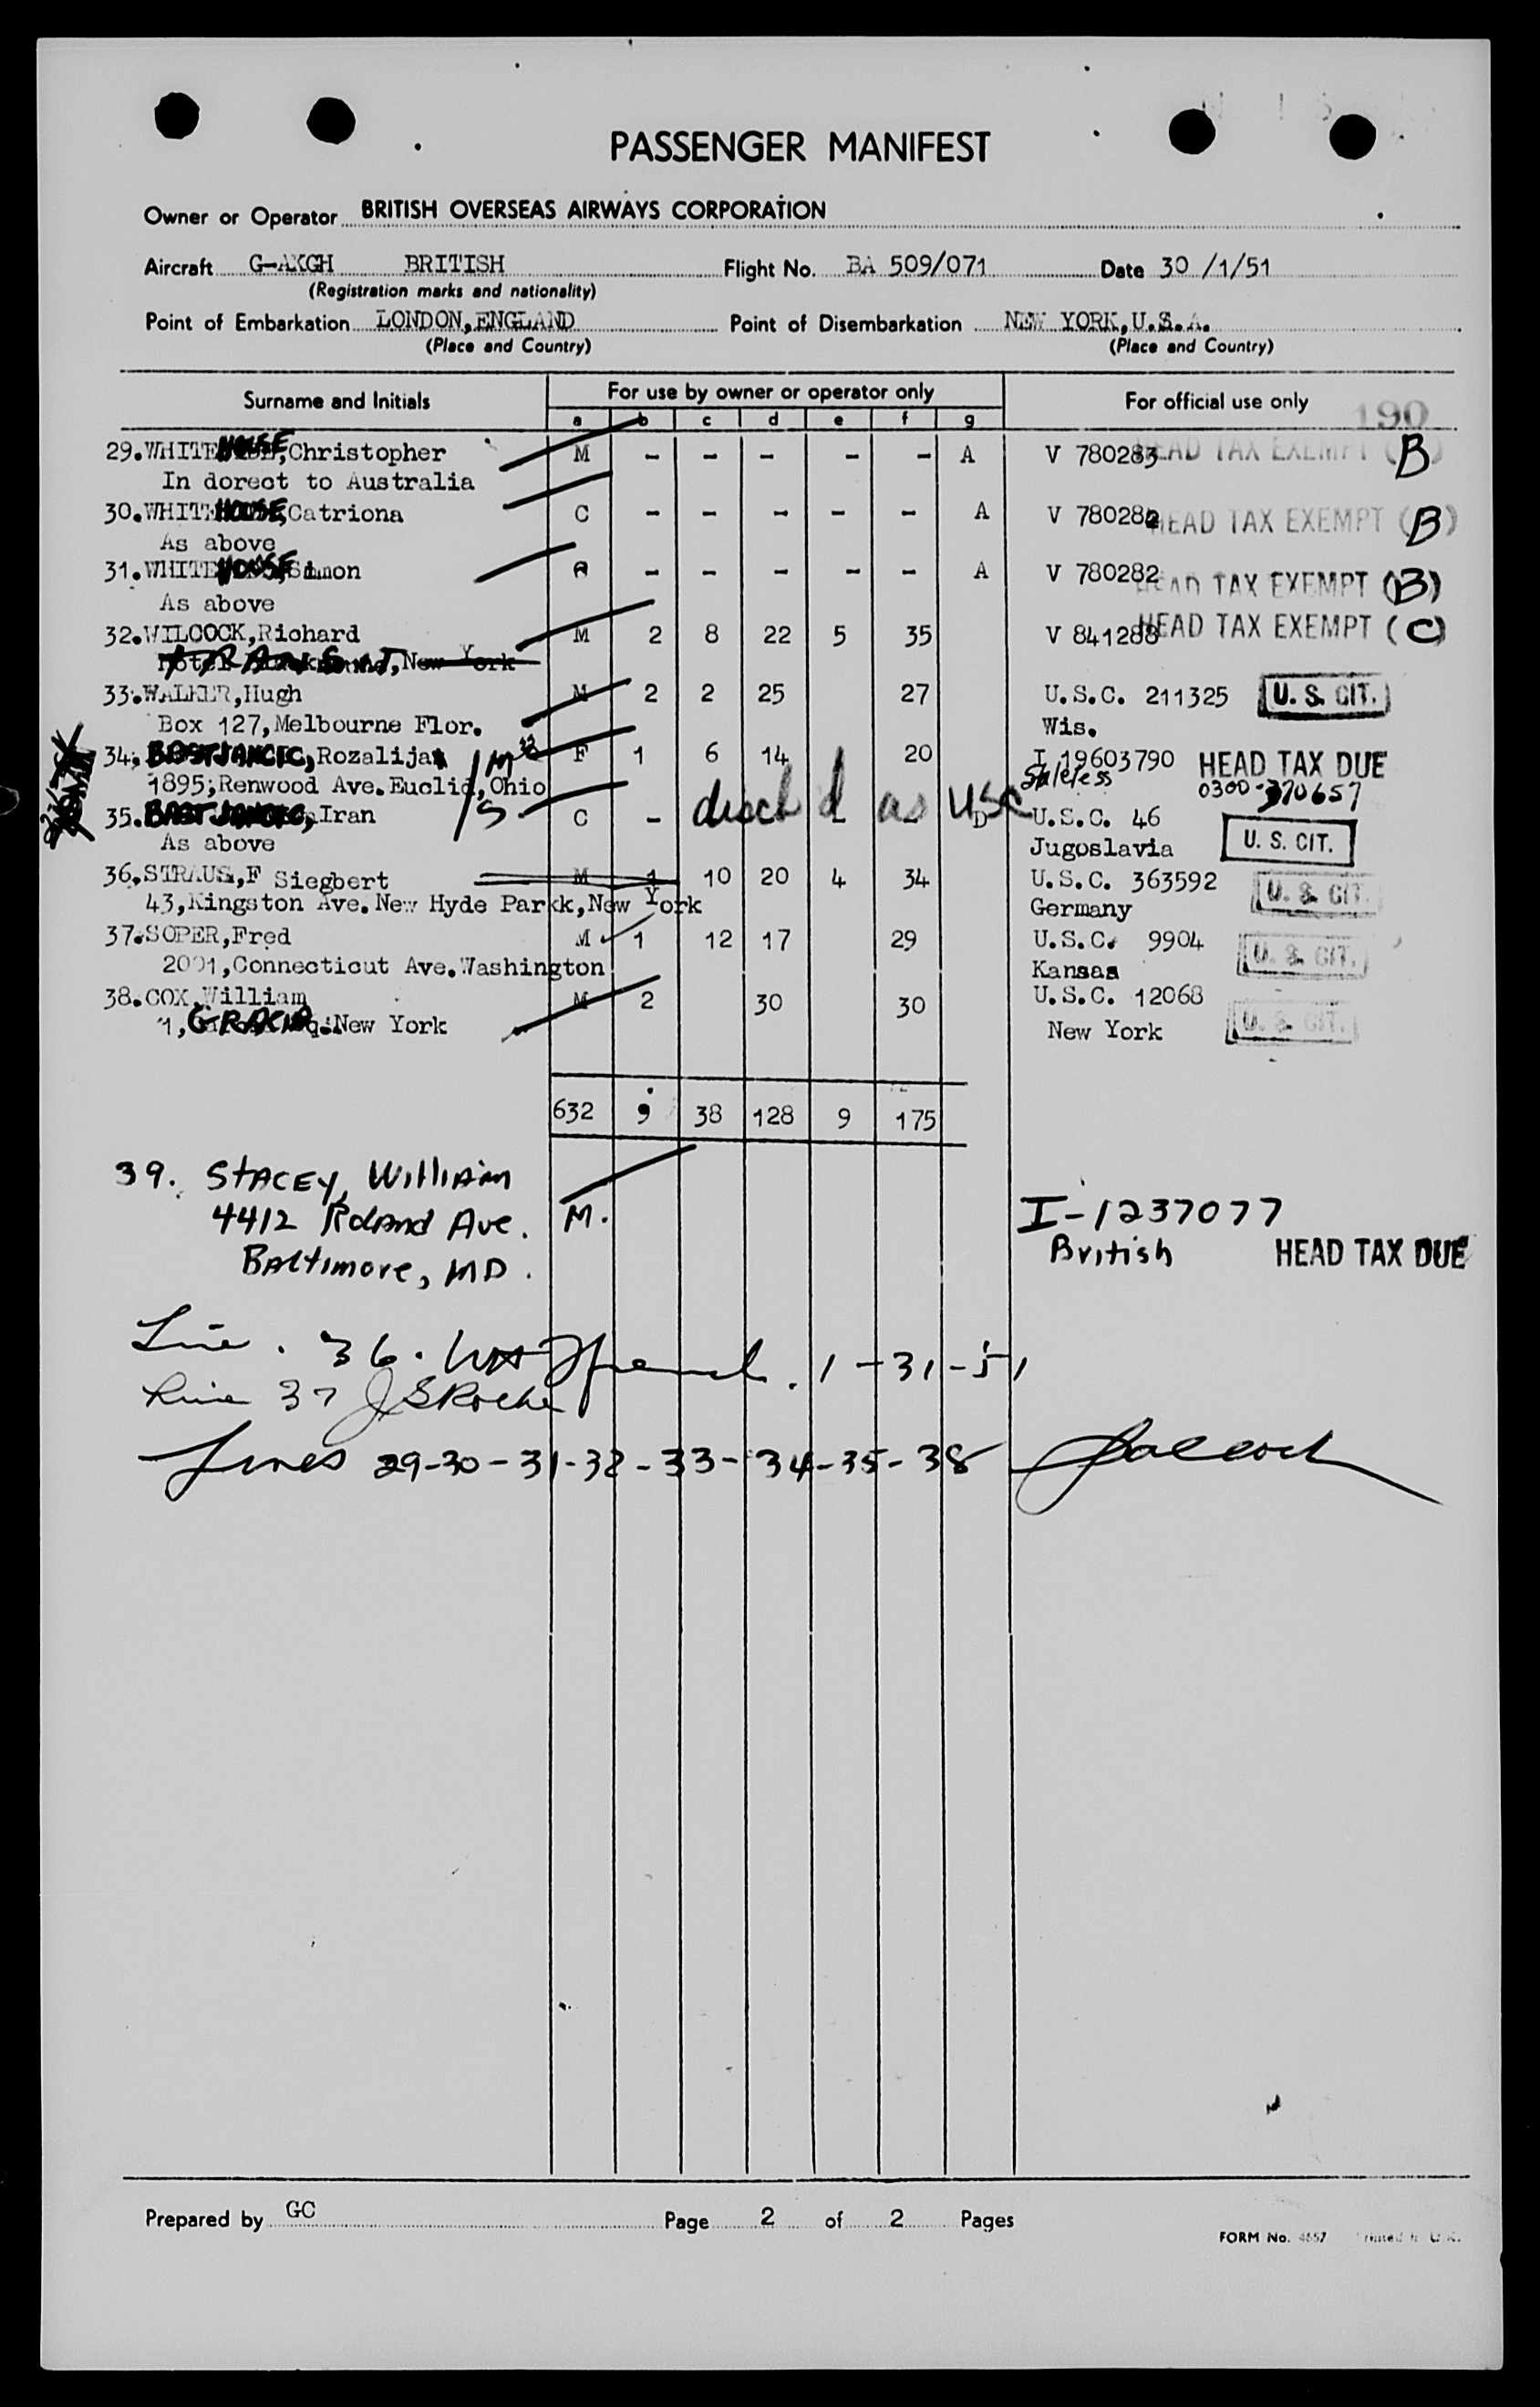 PASSENGER MANIFEST
Owner or Operator BRITISH OVERSEAS AIRWAYS CORPORATION
Aircraft G-AKGH BRITISH Flight No. BA 509/071 Date 30 /1/51
(Registration marks and nationality)
Point of Embarkation LONDON,ENGLAND Point of Disembarkation NEW YORK,U.S.A.
(Place and Country) (Place and Country)
Surname and Initials For use by owner or operator only For official use only
190
a b c d e f g
29.WHITEHOUSE,Christopher M - - - - - A V 780283 HEAD TAX EXEMPT (B)
In dorect to Australia
30.WHITEHOUSE,Catriona C - - - - - A V 780284 HEAD TAX EXEMPT (B)
As above
31.WHITEHOUSE,Simon C - - - - - A V 780282 HEAD TAX EXEMPT (B)
As above
32.WILCOCK,Richard M 2 8 22 5 35 V 841288 HEAD TAX EXEMPT (C)
TRANSIT, New York
33.WALKER,Hugh M 2 2 25 27 U.S.C. 211325 U. S. CIT.
Box 127,Melbourne Flor. Wis.
34. BOSTJANCIC,Rozalija M F 1 6 14 20 I 19603790 HEAD TAX DUE
1895;Renwood Ave.Euclid,Ohio Stateless 0300-370657
35. BOSTJANCIC, Iran S C - desc'd as USC D U.S.C. 46
As above Jugoslavia U. S. CIT.
36.STRAUSS,F Siegbert M 1 10 20 4 34 U.S.C. 363592 U. S. CIT.
43,Kingston Ave.New Hyde Parkk,New York Germany
37.SOPER,Fred M 1 12 17 29 U.S.C. 9904 U. S. CIT.
2001,Connecticut Ave.Washington Kansas
38.COX,William M 2 30 30 U.S.C. 12068
1,GRACIA New York New York U. S. CIT.
632 9 38 128 9 175
39. STACEY, William
4412 Roland Ave. M. I-1237077
Baltimore, MD. British HEAD TAX DUE
Line. 36. 1-31-51
Line 37 JSRoche
Lines 29-30-31-32-33-34-35-38
Prepared by GC Page 2 of 2 Pages
FORM No. 4657 Printed in U.K.